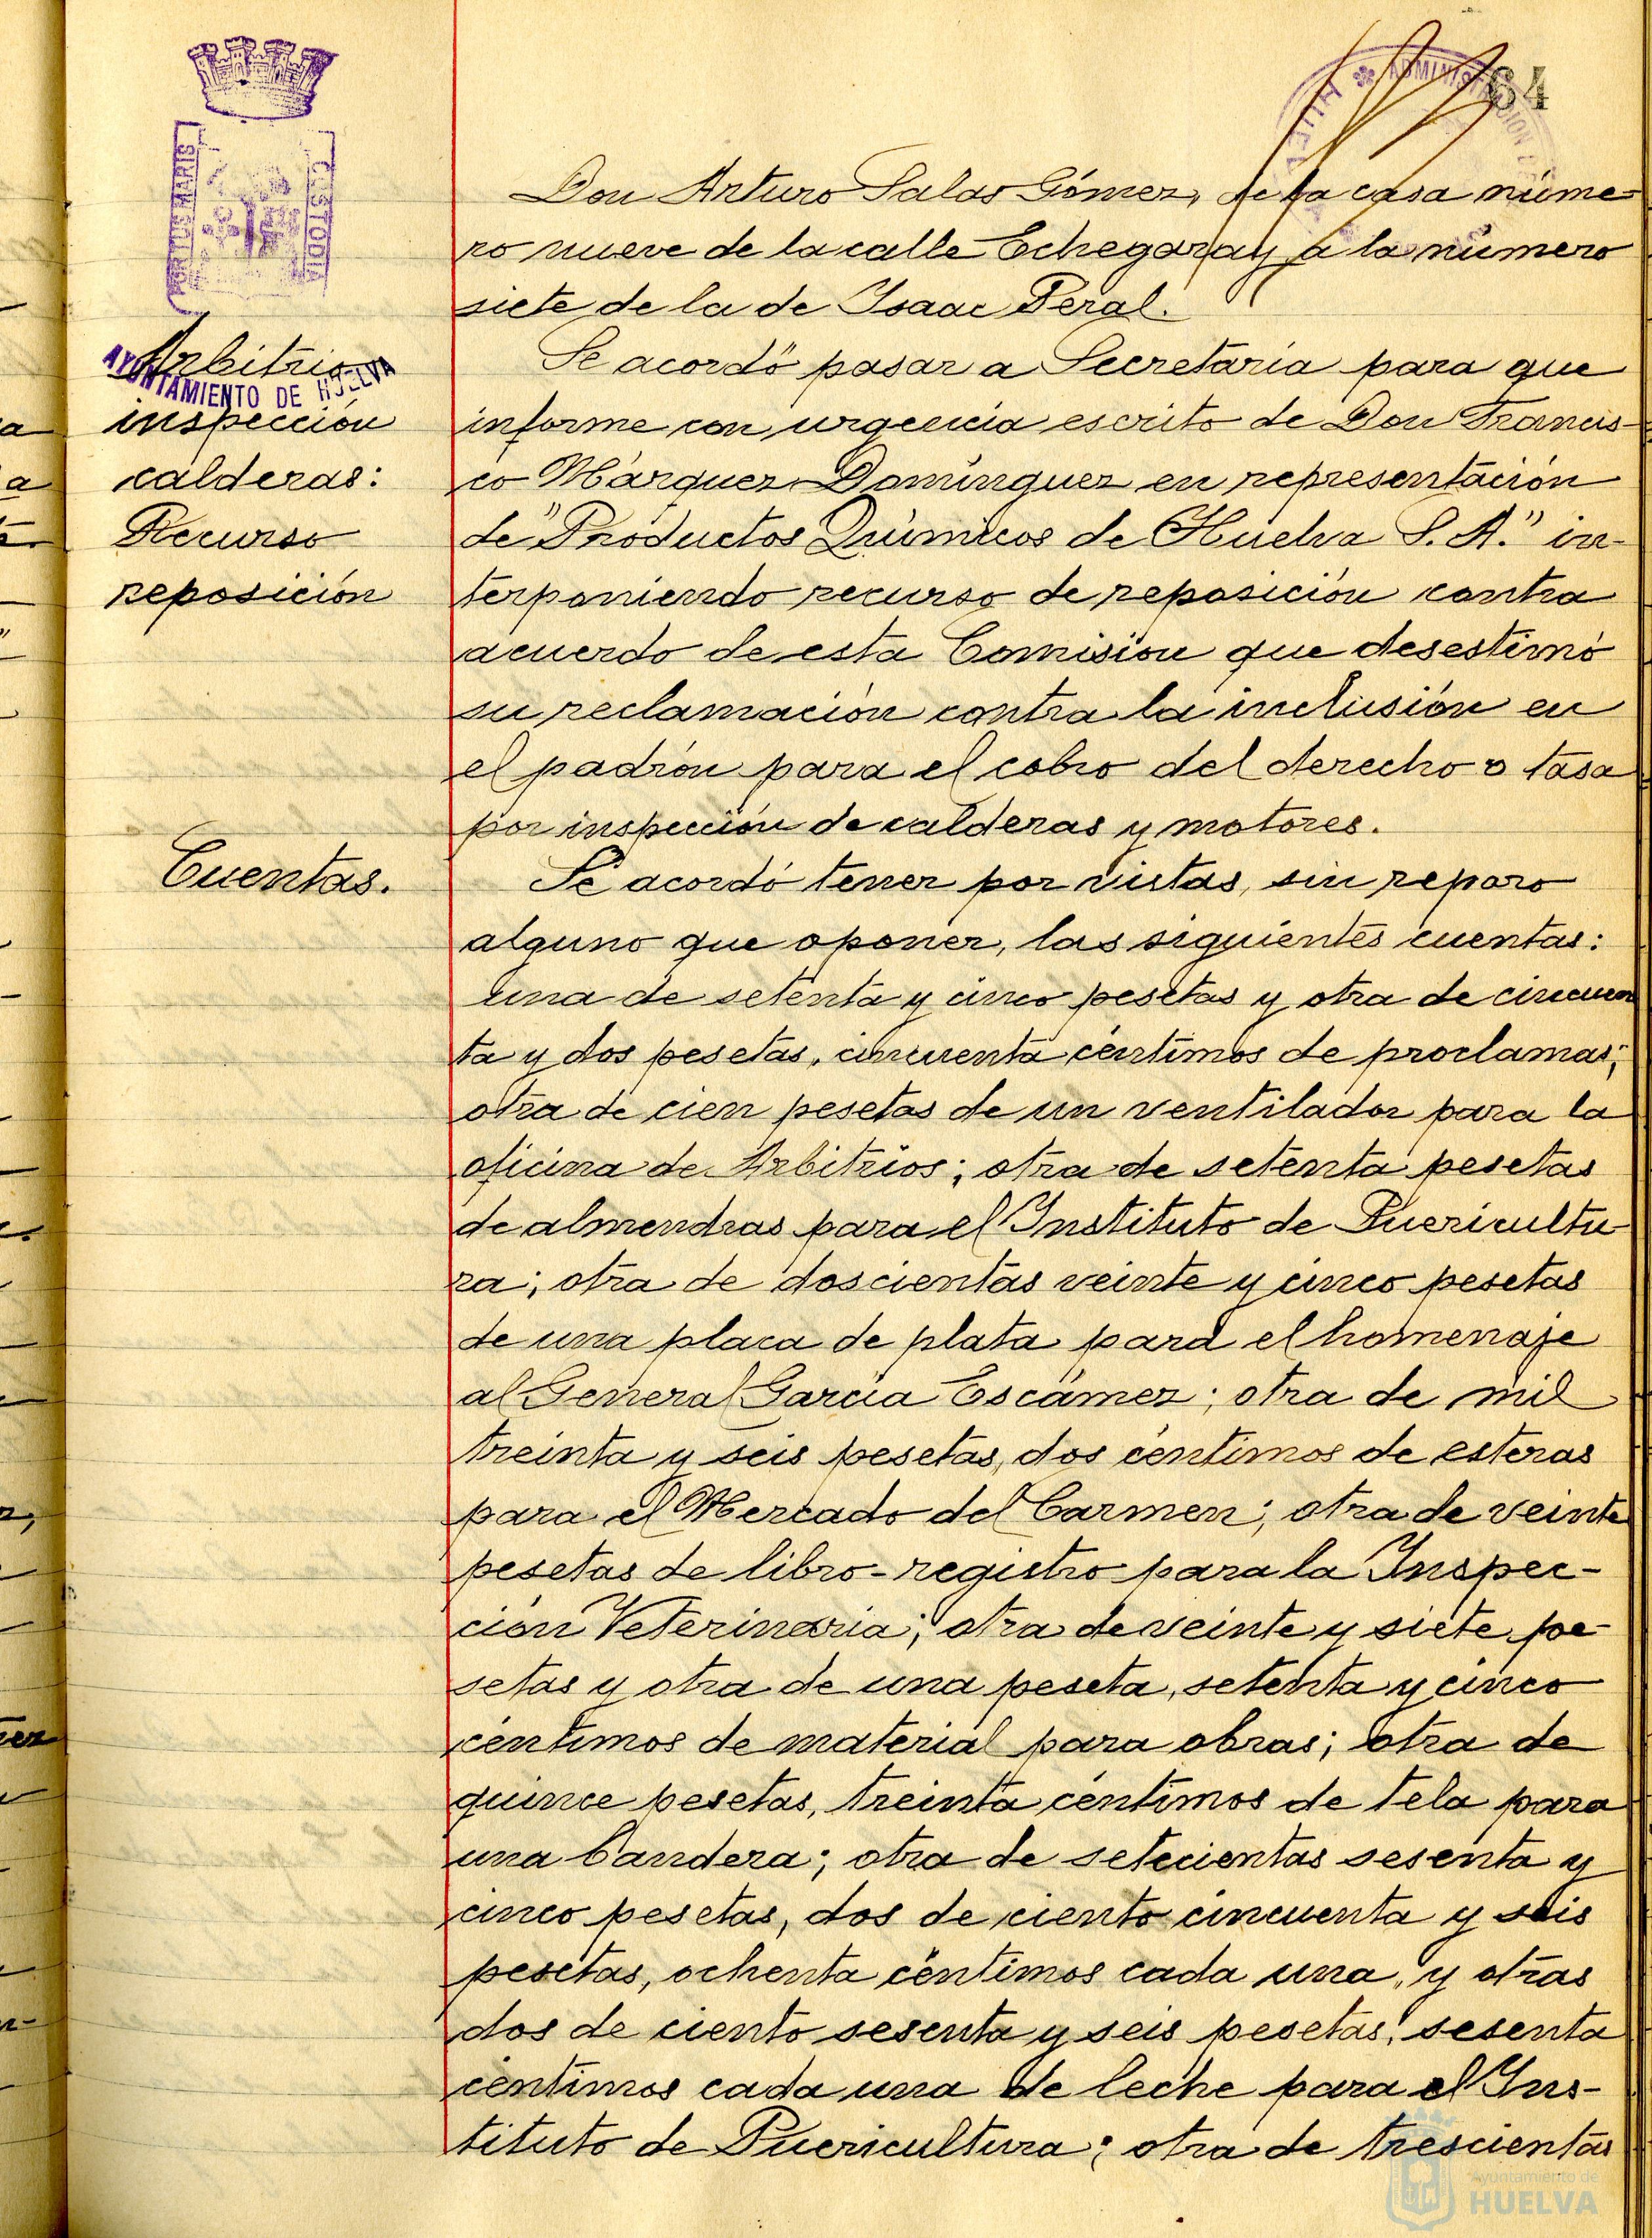 64
ADMINISTRACION
PORTUS MARIS
CUSTODIA
AYUNTAMIENTO DE HUELVA
Don Arturo Salas Gómez, de la casa núme-
ro nueve de la calle Echegaray a la número
siete de la de Isaac Peral.
Arbitrio
inspección
calderas:
Recurso
reposición
Se acordó pasar a Secretaría para que
informe con urgencia escrito de Don Francis-
co Márquez Domínguez en representación
de "Productos Químicos de Huelva S. A." in-
terponiendo recurso de reposición contra
acuerdo de esta Comisión que desestimó
su reclamación contra la inclusión en
el padrón para el cobro del derecho o tasa
por inspección de calderas y motores.
Cuentas.
Se acordó tener por vistas, sin reparo
alguno que oponer, las siguientes cuentas:
una de setenta y cinco pesetas y otra de cincuen
ta y dos pesetas, cincuenta céntimos de proclamas;
otra de cien pesetas de un ventilador para la
oficina de Arbitrios; otra de setenta pesetas
de almendras para el Instituto de Puericultu-
ra; otra de doscientas veinte y cinco pesetas
de una placa de plata para el homenaje
al General García Escámez; otra de mil
treinta y seis pesetas, dos céntimos de esteras
para el Mercado del Carmen; otra de veinte
pesetas de libro-registro para la Inspec-
ción Veterinaria; otra de veinte y siete pe-
setas y otra de una peseta, setenta y cinco
céntimos de material para obras; otra de
quince pesetas, treinta céntimos de tela para
una bandera; otra de setecientas sesenta y
cinco pesetas, dos de ciento cincuenta y seis
pesetas, ochenta céntimos cada una, y otras
dos de ciento sesenta y seis pesetas, sesenta
céntimos cada una de leche para el Ins-
tituto de Puericultura; otra de trescientas
Ayuntamiento de
HUELVA